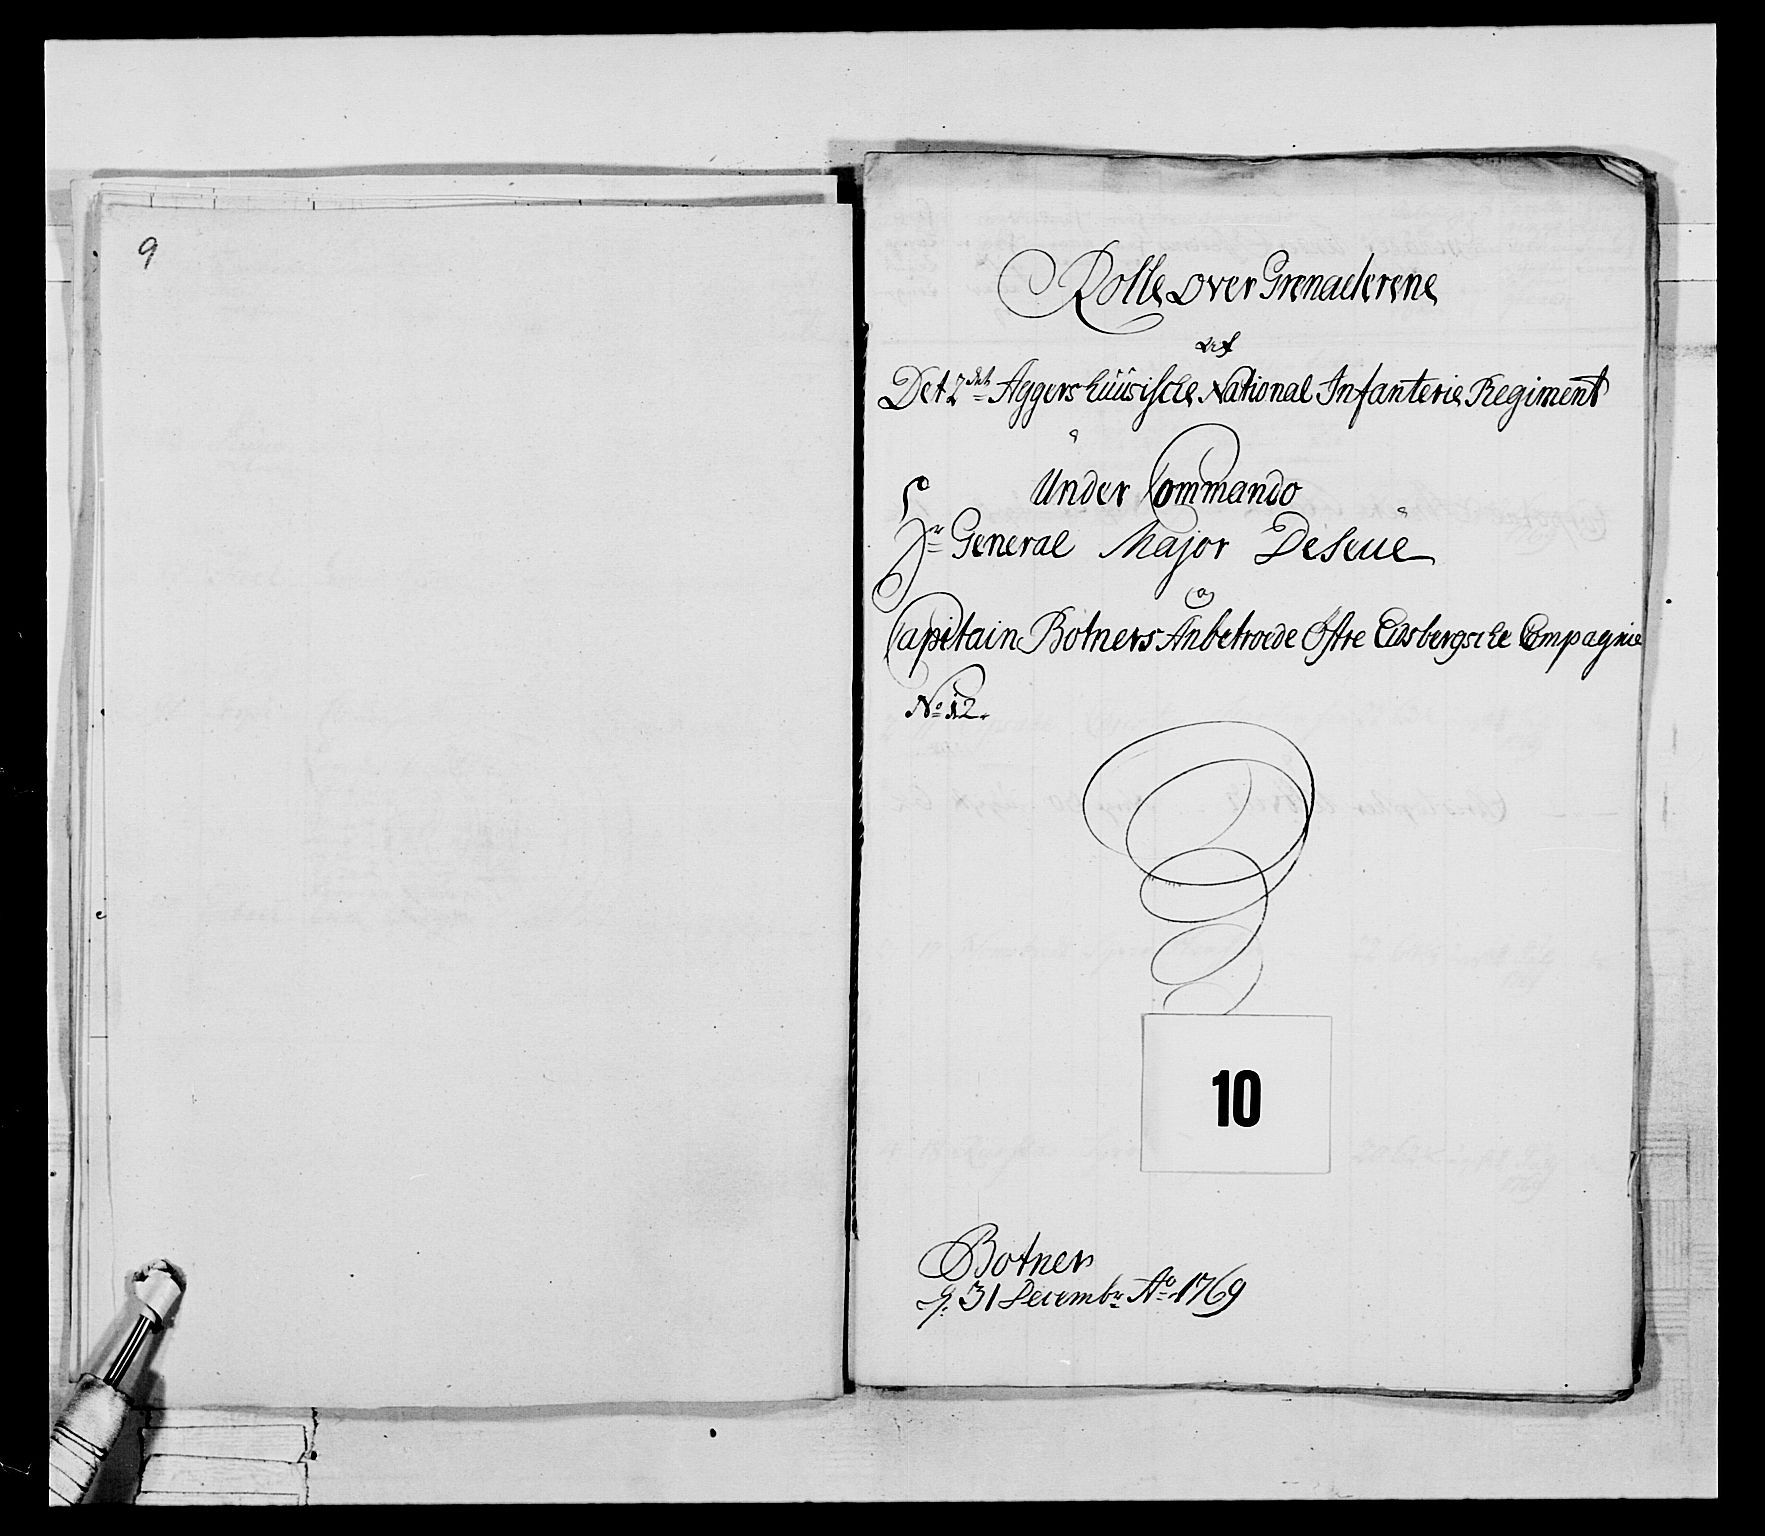 9
Rolle over Grenaderene
af
Det 2det Aggershüüsische National Infanterie Regiment
Under Commando
Hr General Major DeSeüe
Capitain Botners Anbetroede Østre Eidsbergsche Compagnie
No 12.
10
Botner
d. 31 Decembr Ao 1769